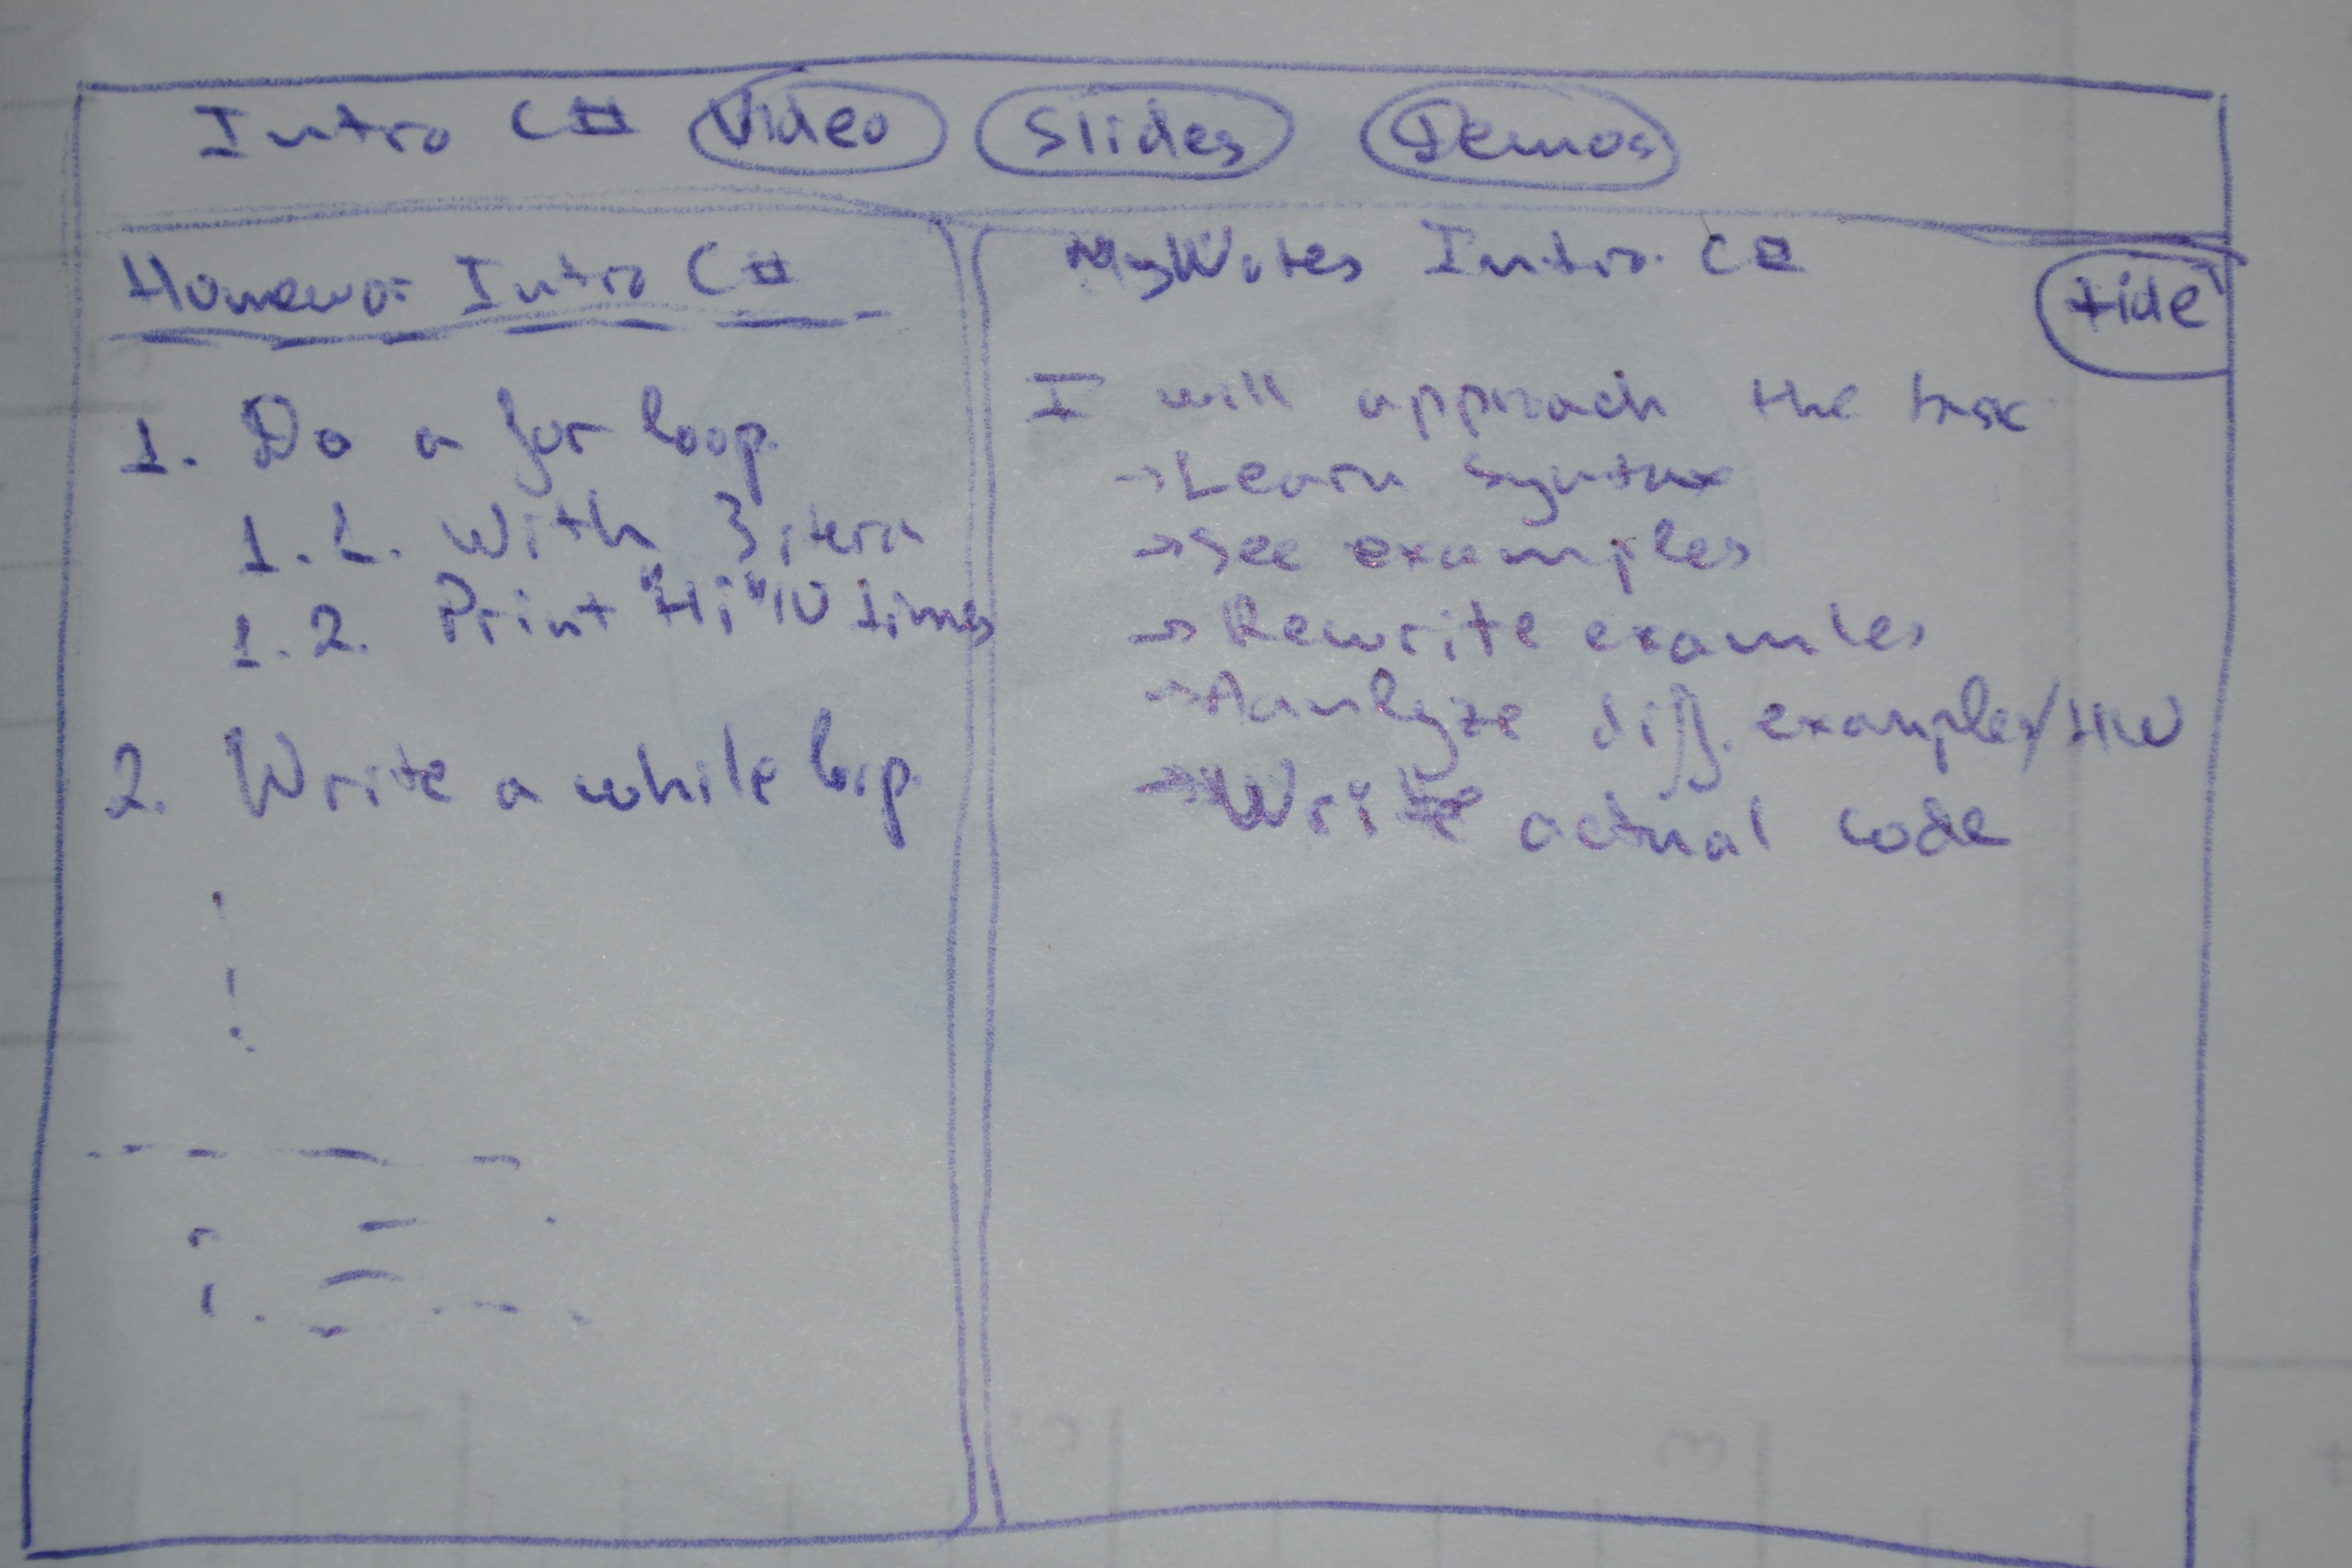 Intro C# Video Slides Demos
Homewor Intro C#
1. Do a for loop
1.1. With 3 itera
1.2. Print "Hi" 10 times
2. Write a while loop
My Notes Intro C#
Hide
I will approach the task
→ Learn syntax
→ See examples
→ Rewrite examles
→ Aanlyze diff. examples/HW
→ Write actual code